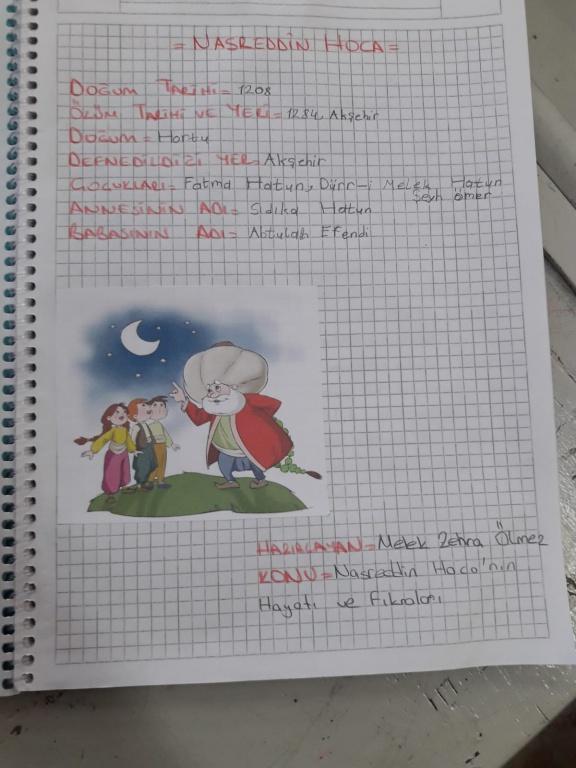 = NASREDDİN HOCA =
DOĞUM TARİHİ= 1208
ÖLÜM TARİHİ VE YERİ= 1284, Akşehir
DOĞUM= Hortu
DEFNEDİLDİĞİ YER= Akşehir
ÇOCUKLARI= Fatma Hatun, Dürr-i Melek Hatun
Şeyh Ömer
ANNESİNİN ADI= Sıdıka Hatun
BABASININ ADI= Abtulah Efendi
HAZIRLAYAN= Melek Zehra Ölmez
KONU= Nasreddin Hoca'nın
Hayatı ve Fıkraları